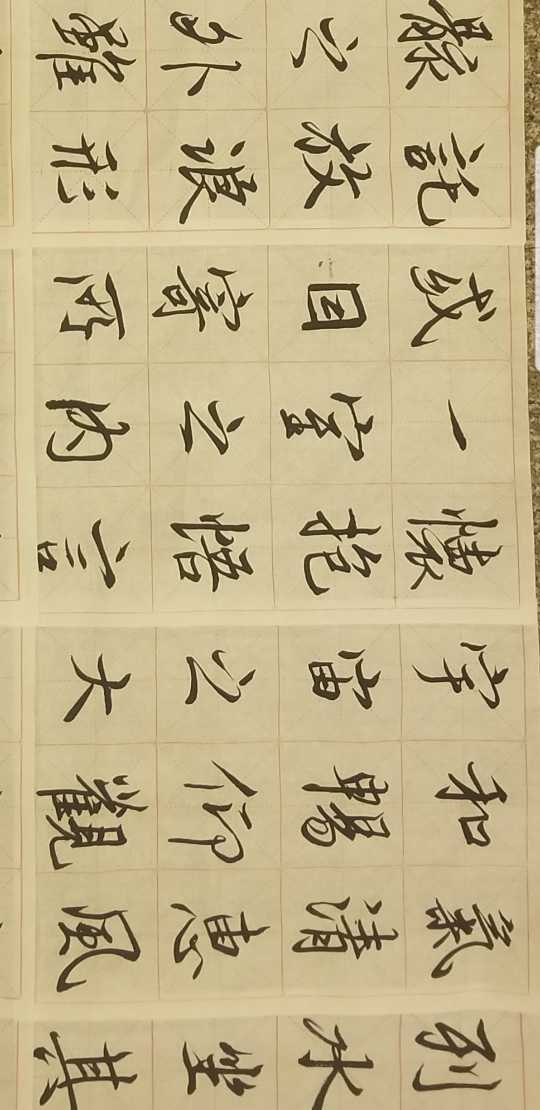 列水坐其
氣清惠風
和暢仰觀
宇宙之大
懷抱悟言
一室之內
或因寄所
託放浪形
骸之外雖